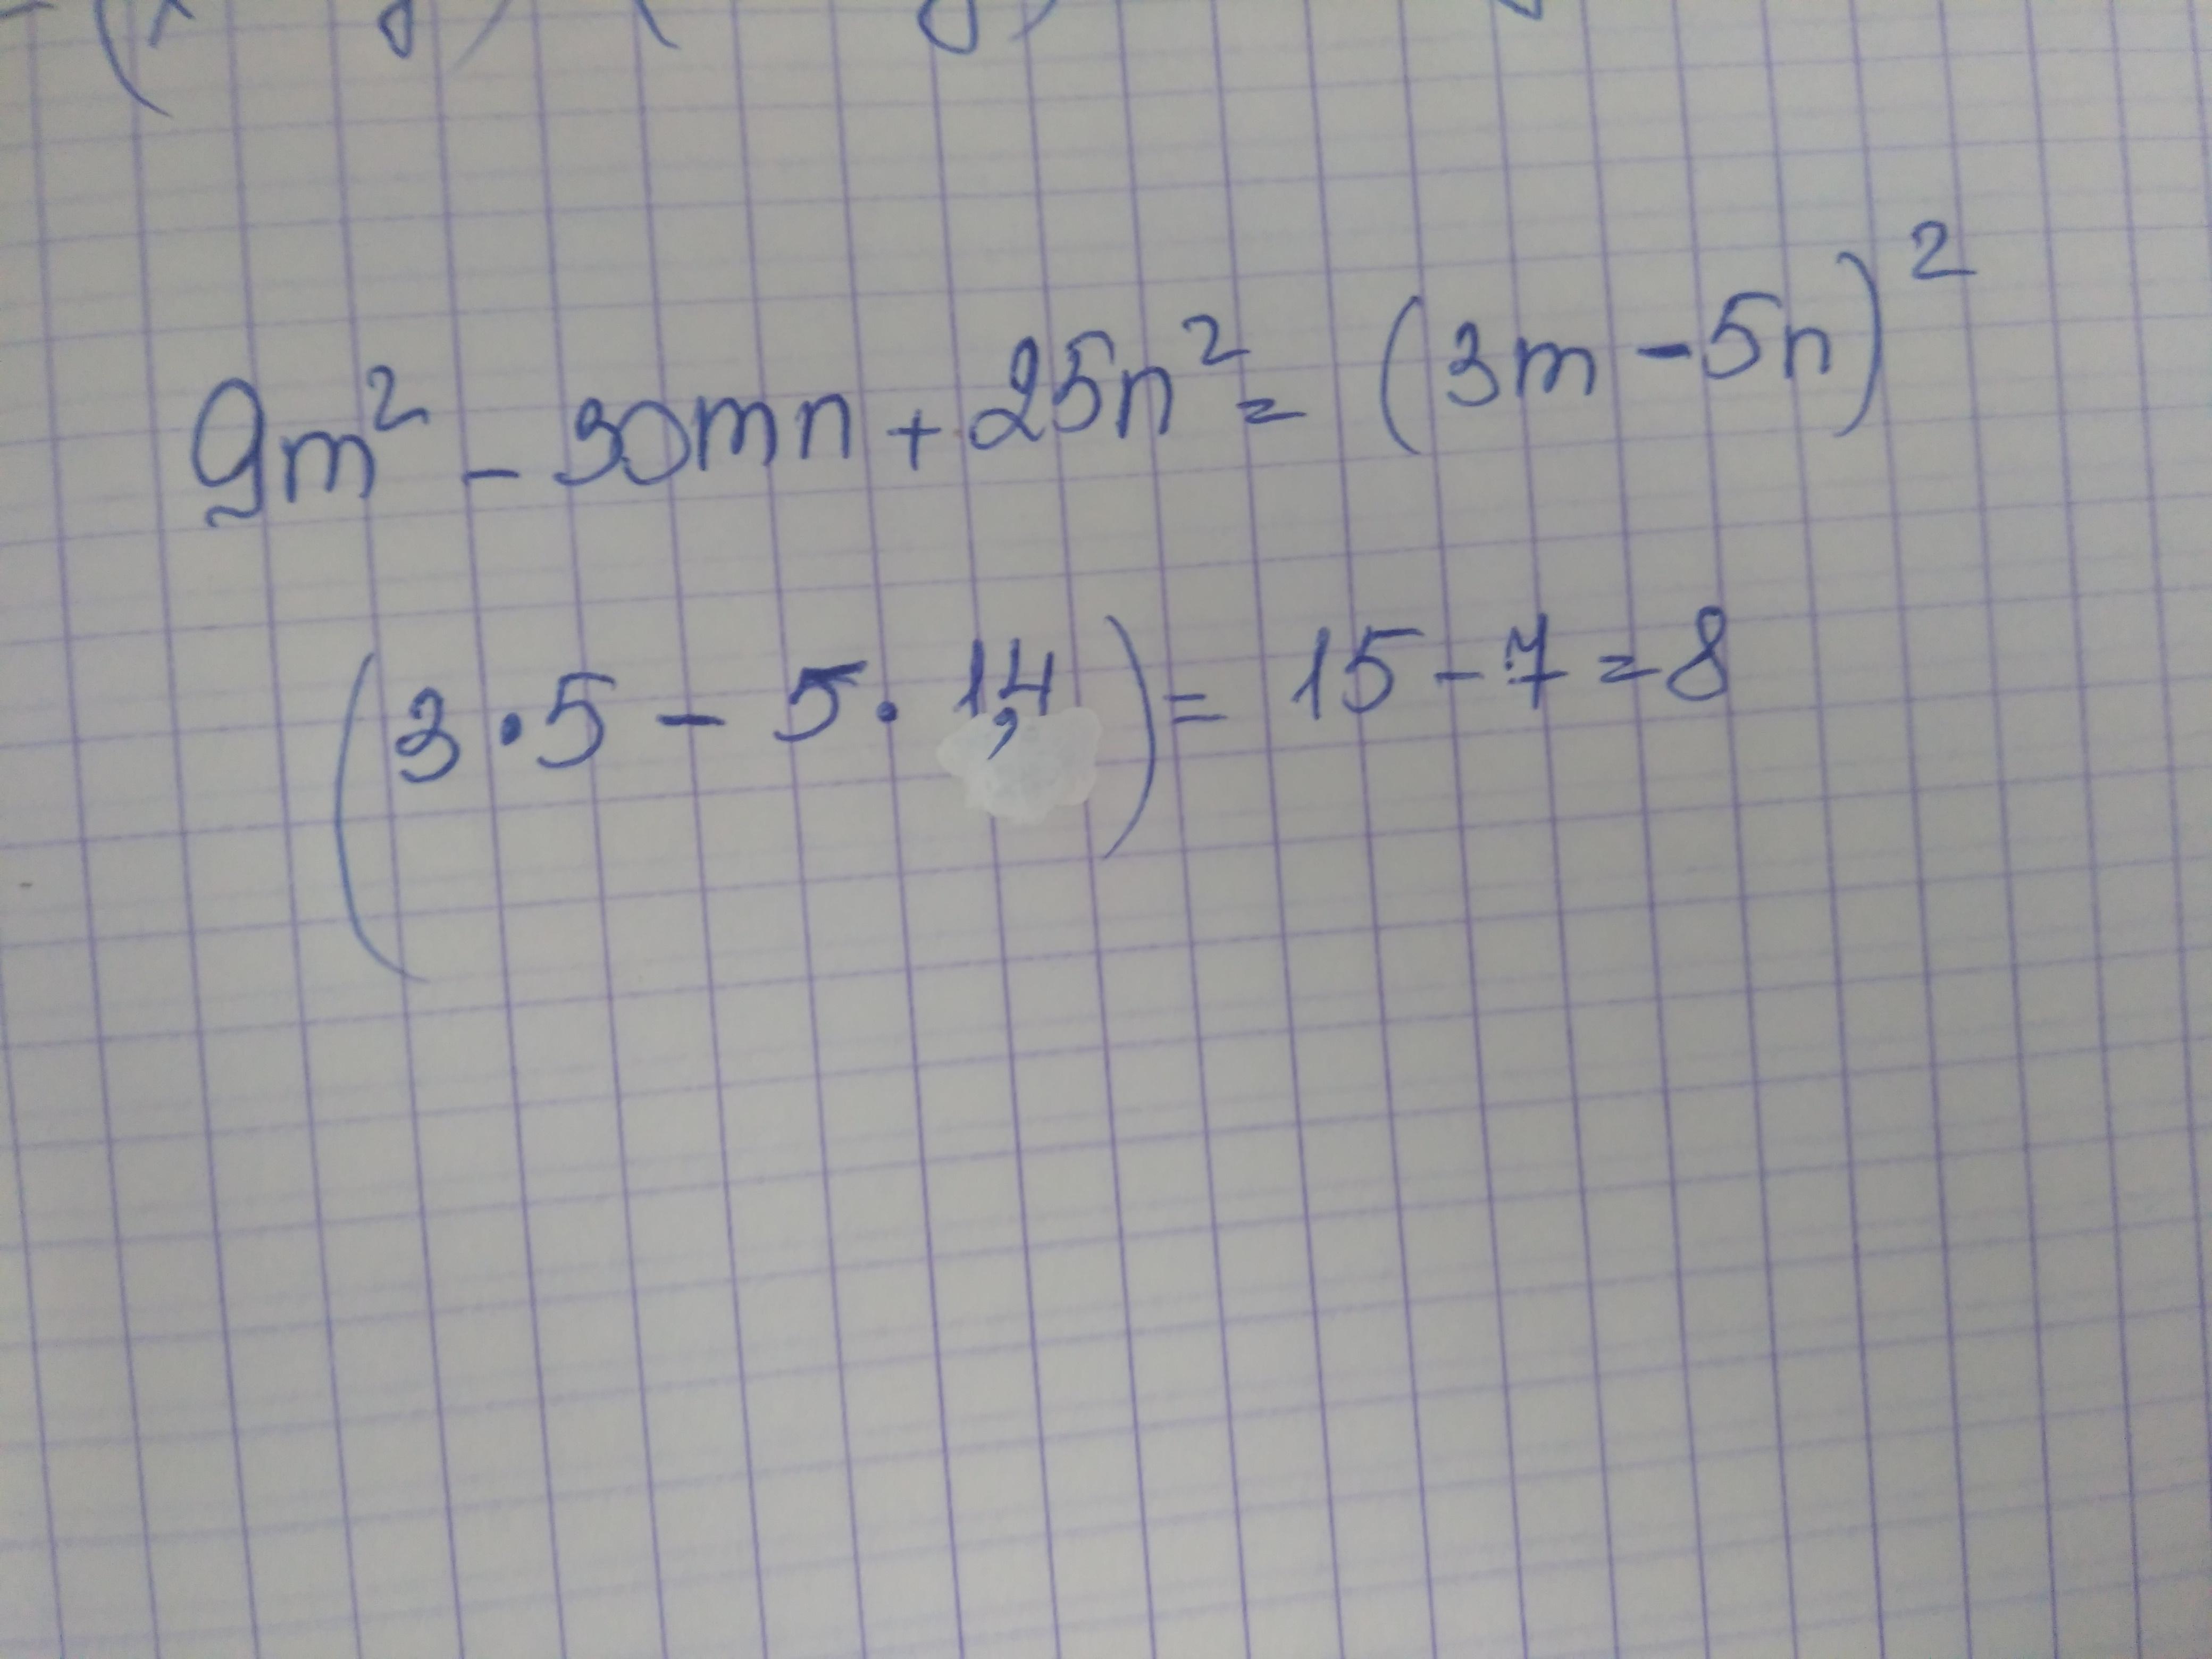 9m² - 30mn + 25n² = (3m - 5n)²
(3 · 5 - 5 · 1,4) = 15 - 7 = 8